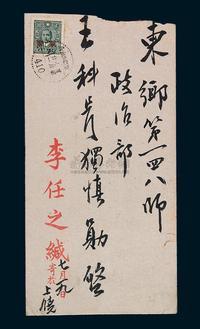 東鄉第一四八師
政治部
王科長獨慎勛啓
李任之緘
七月九日
寄於上饒
410